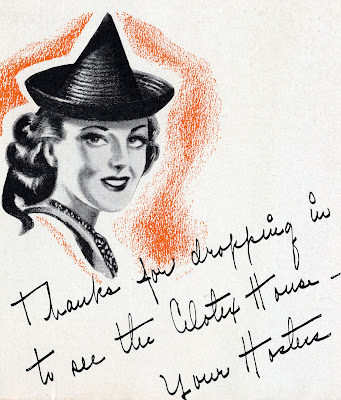 Thanks for dropping in
to see the Celotex House -
Your Hostess